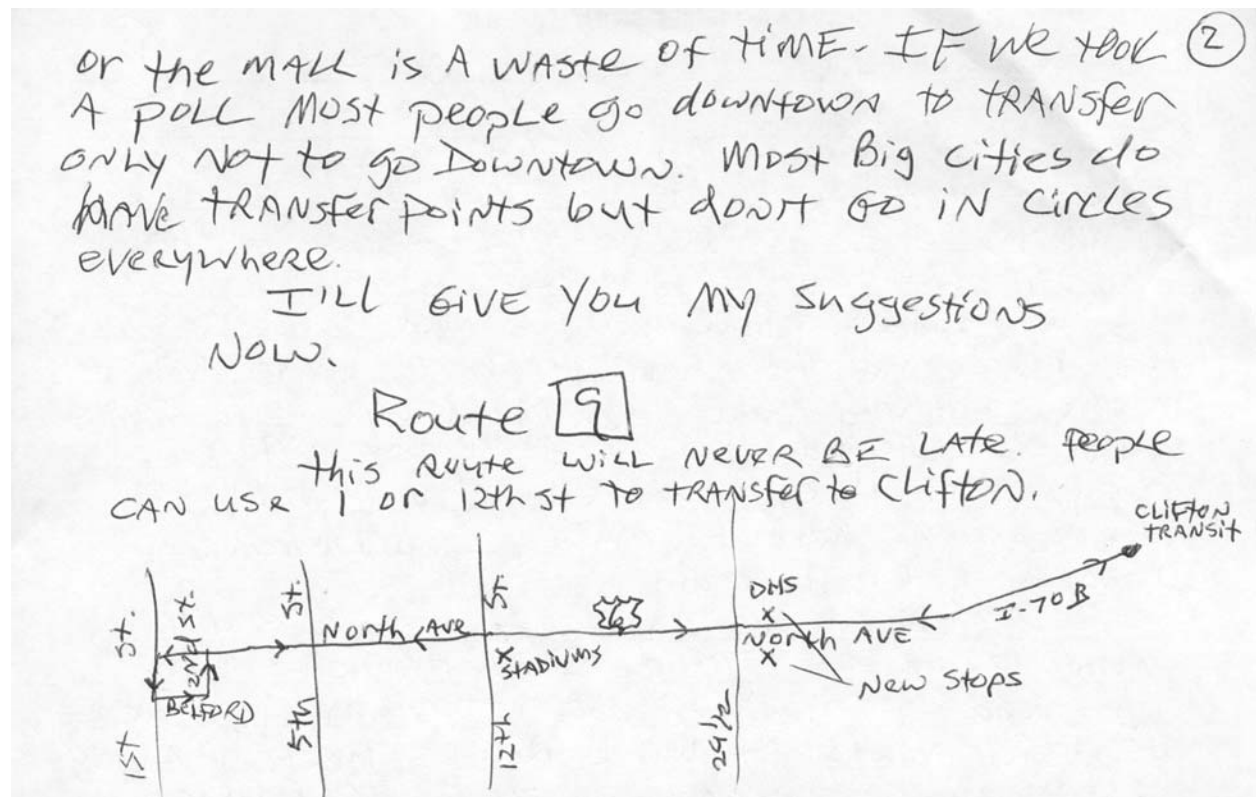 ②
or the MALL is A WASte of tiME. IF we took
A POLL Most people go downtown to tRANSfer
ONLy Not to go Downtown. Most Big cities do
HAVE tRANSfer points but don't GO iN Circles
everywhere.
I'll GiVE You My Suggestions
Now.
Route 9
this Route will NEVER BE LAte. people
CAN USE 1 or 12th st to tRANSfer to Clifton.
CLIFTON
TRANSit
DHS
6
I-70 B
1ST St.
2Nd St.
BELFORD
5th St.
North AVE
12th St.
STADIUMS
29 1/2
North AVE
New Stops